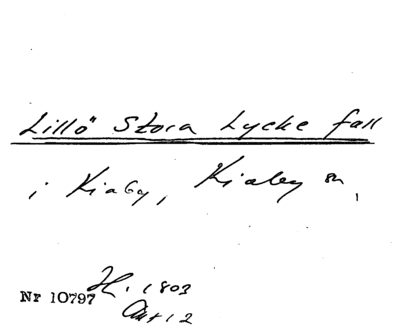 Lillö Stora Lycke fall
i Kiaby, Kiaby sn,
H. 1803
Nr 10797
Akt 12